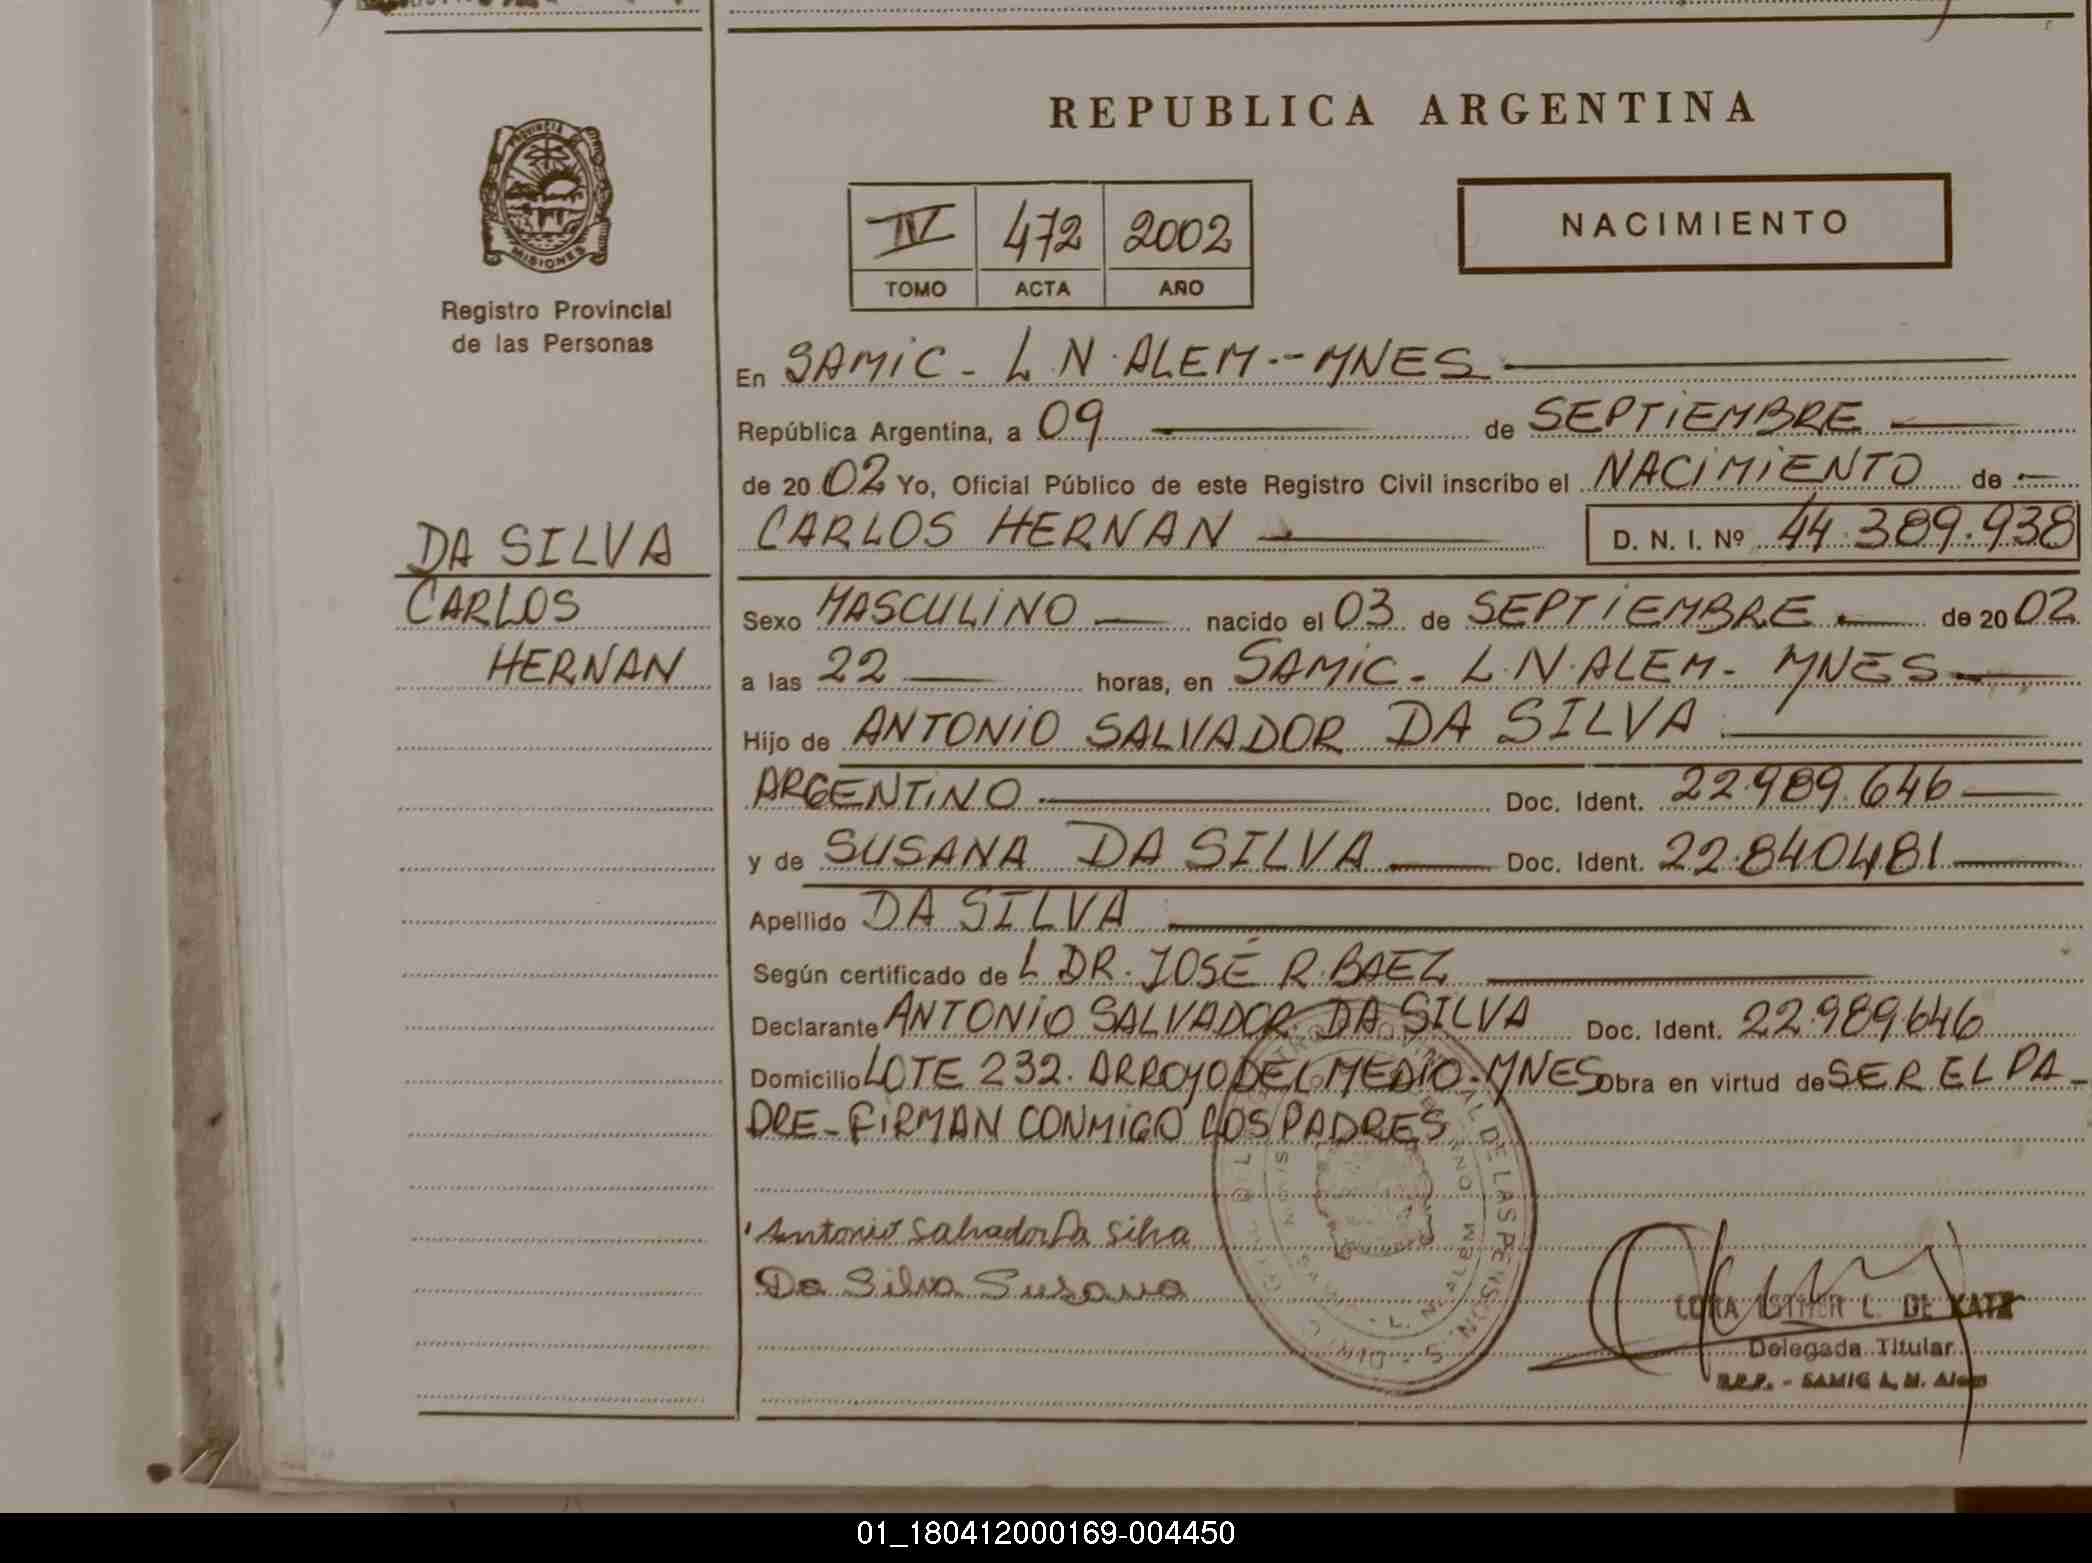 REPUBLICA ARGENTINA
PROVINCIA DE MISIONES
Registro Provincial
de las Personas
IV 472 2002
TOMO ACTA AÑO
NACIMIENTO
En SAMIC - L.N. ALEM -- MNES
República Argentina, a 09 de SEPTIEMBRE
de 2002 Yo, Oficial Público de este Registro Civil inscribo el NACIMIENTO de
CARLOS HERNAN D. N. I. Nº 44.389.938
DA SILVA
CARLOS
HERNAN
Sexo MASCULINO nacido el 03 de SEPTIEMBRE de 2002
a las 22 horas, en SAMIC - L.N. ALEM - MNES
Hijo de ANTONIO SALVADOR DA SILVA
ARGENTINO Doc. Ident. 22.989.646
y de SUSANA DA SILVA Doc. Ident. 22.840481
Apellido DA SILVA
Según certificado de L DR. JOSÉ R. BAEZ
Declarante ANTONIO SALVADOR DA SILVA Doc. Ident. 22.989646
Domicilio LOTE 232. ARROYO DEL MEDIO - MNES Obra en virtud de SER EL PA-
DRE - FIRMAN CONMIGO LOS PADRES
Antonio Salvador Da Silva
Da Silva Susana
ESTHER L. DE KATZ
Delegada Titular
R.P.P. - SAMIC L. N. Alem
DE LAS PERSONAS
L. N. ALEM
01_180412000169-004450